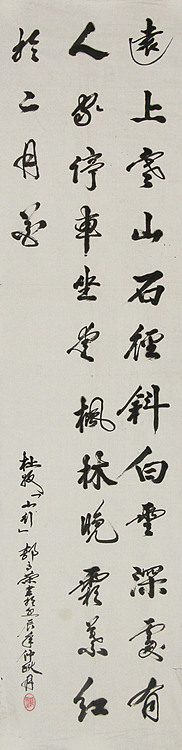 遠上寒山石徑斜白雲深處有
人家停車坐愛楓林晚霜葉紅
於二月花
杜牧「山行」